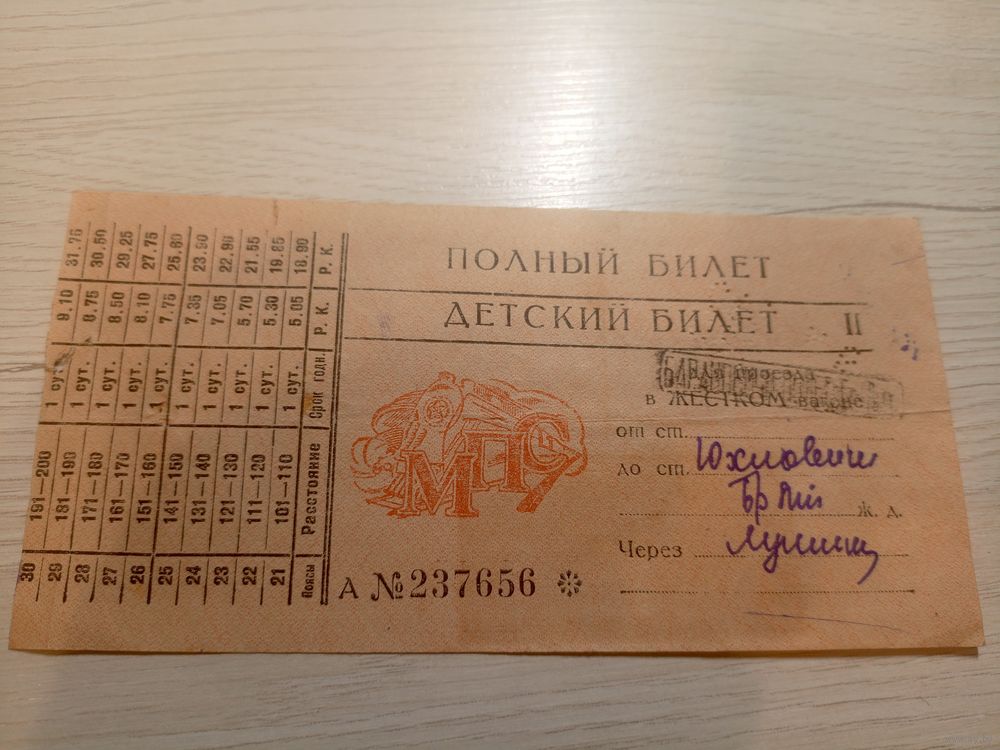 ПОЛНЫЙ БИЛЕТ
ДЕТСКИЙ БИЛЕТ II
Для проезда
в ЖЕСТКОМ вагоне
от ст.
до ст. Юхновичи
ж. д.
Через Лунинец
МПС
А № 237656
Пояса Расстояние Срок годн. Р. К. Р. К.
21 101—110 1 сут. 5.05 18.90
22 111—120 1 сут. 5.30 19.85
23 121—130 1 сут. 5.70 21.55
24 131—140 1 сут. 7.05 22.90
25 141—150 1 сут. 7.35 23.90
26 151—160 1 сут. 7.75 25.80
27 161—170 1 сут. 8.10 27.75
28 171—180 1 сут. 8.50 29.25
29 181—190 1 сут. 8.75 30.50
30 191—200 1 сут. 9.10 31.75